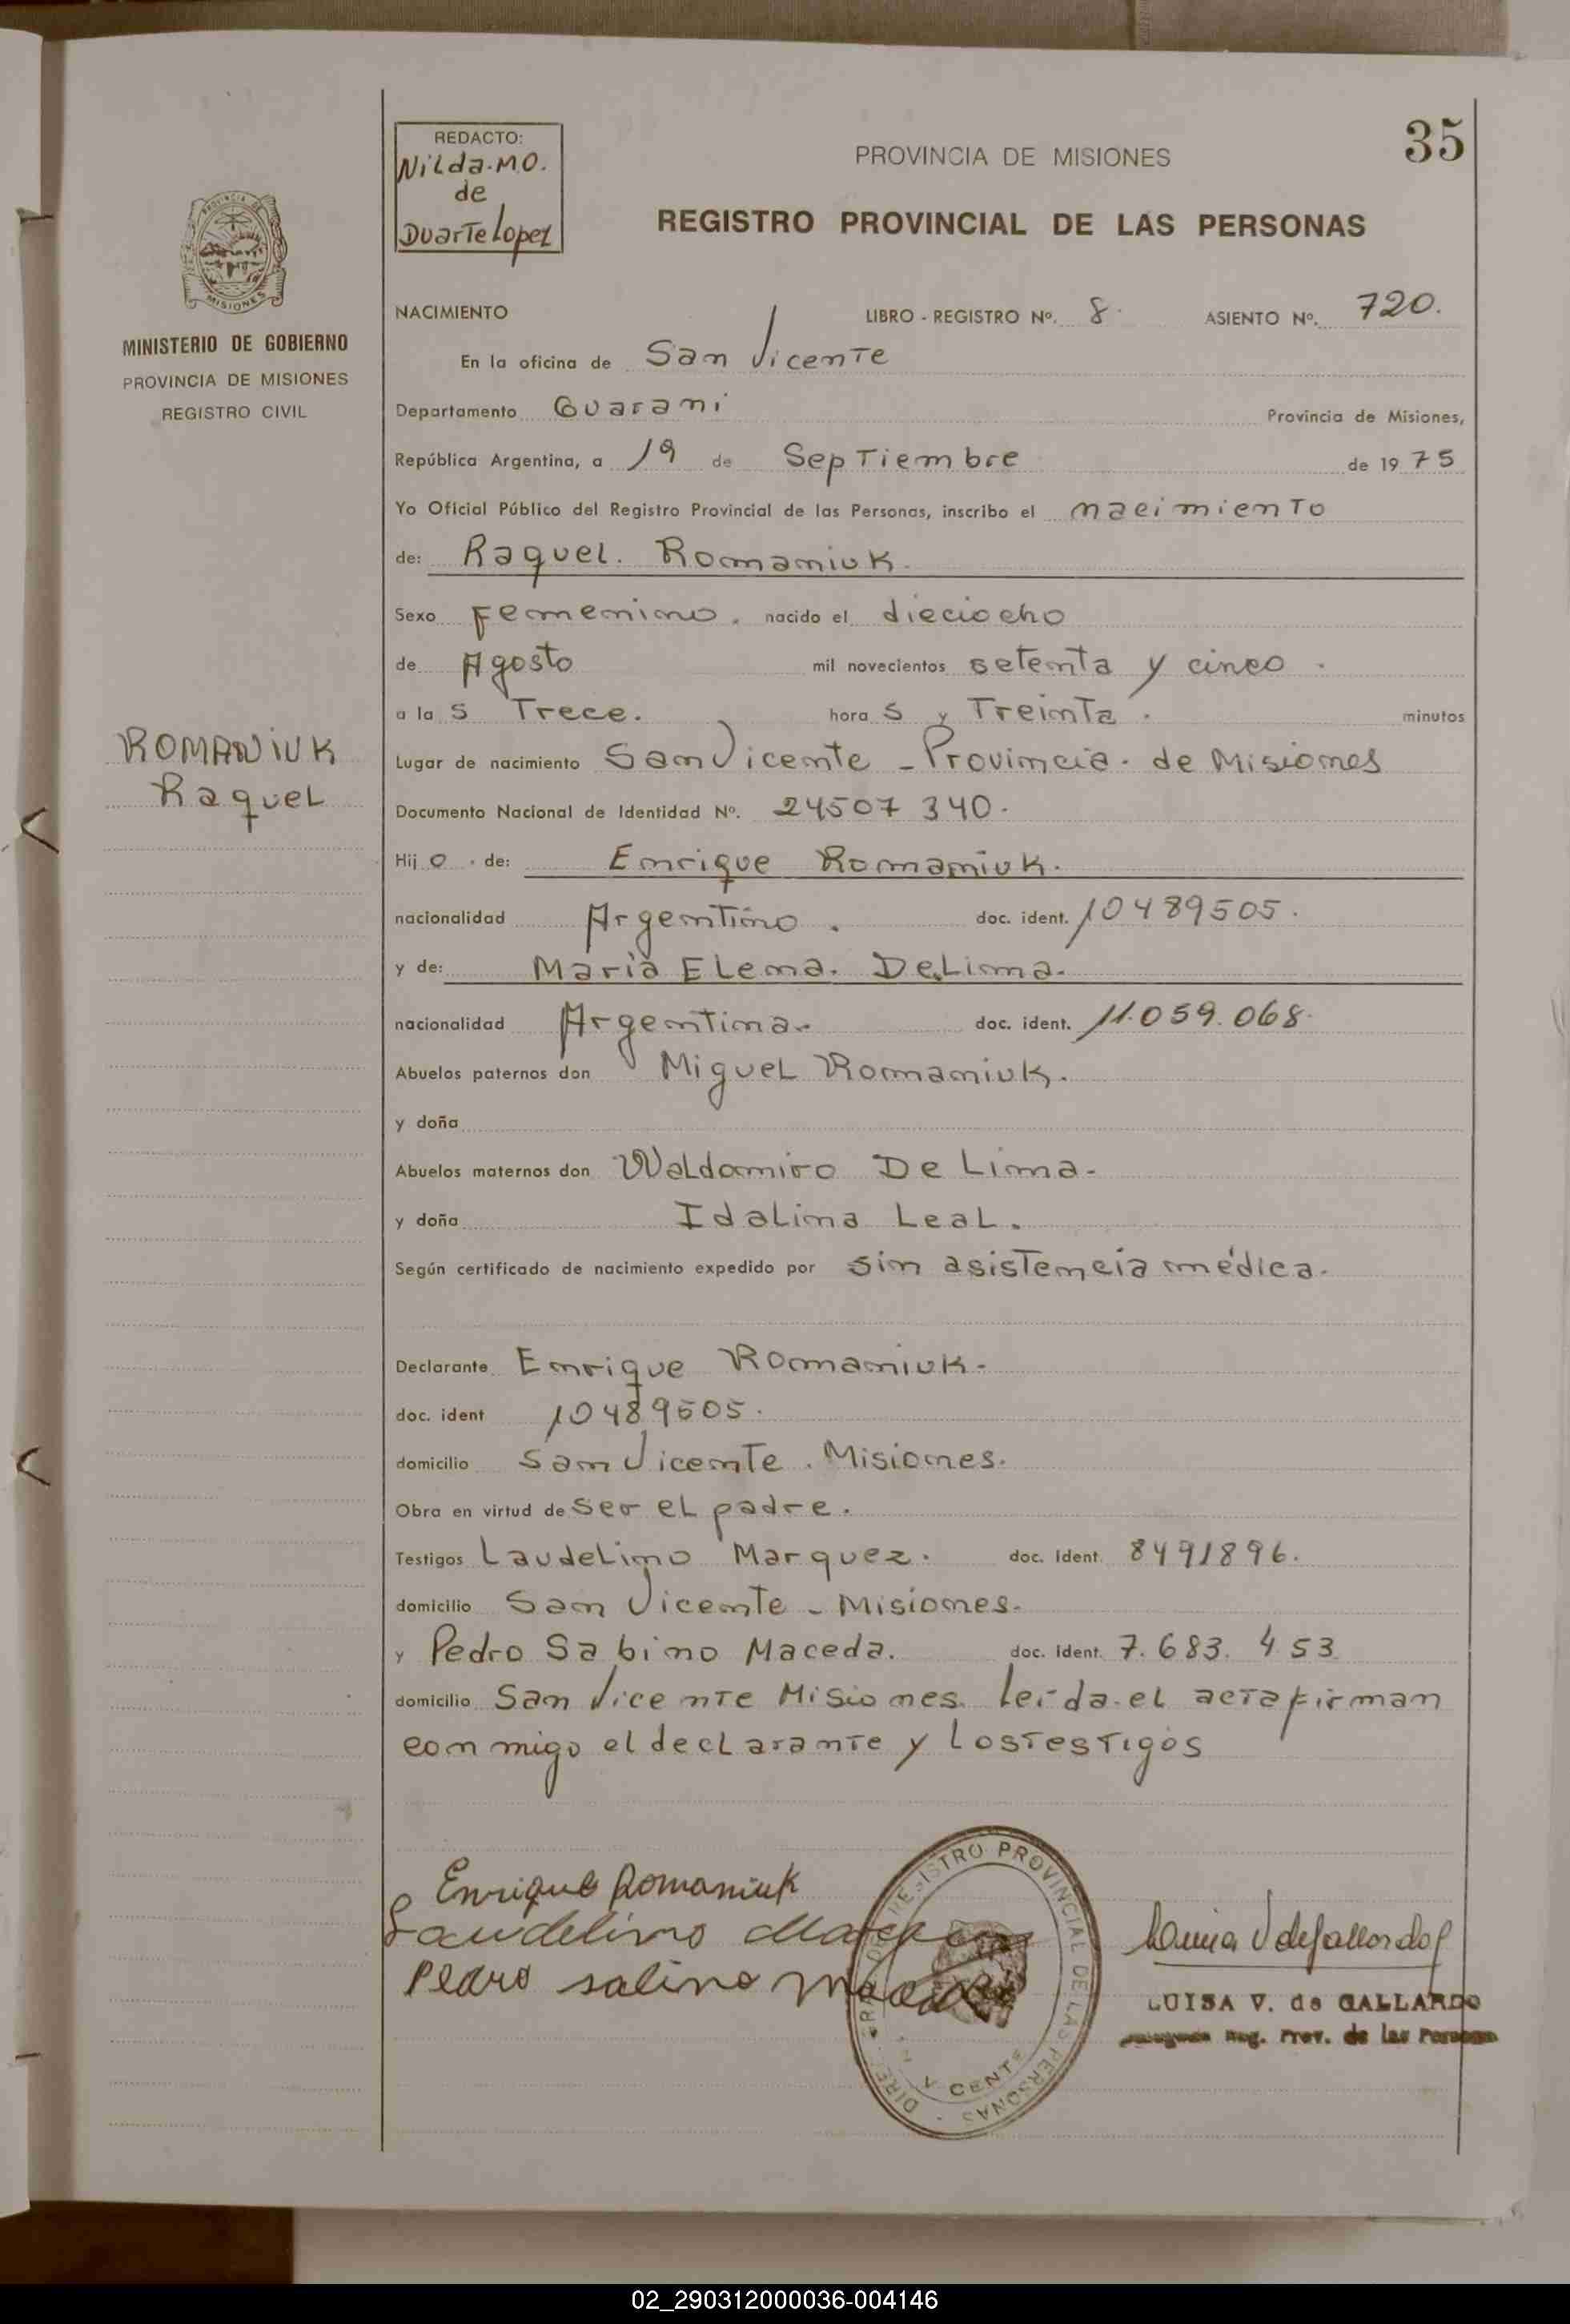 35
REDACTO:
Nilda.M.O.
de
Duarte Lopez
PROVINCIA DE MISIONES
REGISTRO PROVINCIAL DE LAS PERSONAS
MISIONES
MINISTERIO DE GOBIERNO
PROVINCIA DE MISIONES
REGISTRO CIVIL
NACIMIENTO LIBRO - REGISTRO Nº. 8. ASIENTO Nº. 720.
En la oficina de San Vicente
Departamento Guarani Provincia de Misiones,
República Argentina, a 19 de Septiembre de 1975
Yo Oficial Público del Registro Provincial de las Personas, inscribo el nacimiento
de: Raquel. Romaniuk.
Sexo Femenino. nacido el dieciocho
de Agosto mil novecientos setenta y cinco.
a la s Trece. hora s y Treinta. minutos
ROMANIUK
Raquel
Lugar de nacimiento San Vicente - Provincia. de Misiones
Documento Nacional de Identidad Nº. 24507 340.
Hij o. de: Enrique Romaniuk.
nacionalidad Argentino. doc. ident. 10489505.
y de: Maria Elena. De Lima.
nacionalidad Argentina. doc. ident. 11.059.068.
Abuelos paternos don Miguel Romaniuk.
y doña
Abuelos maternos don Waldomiro De Lima-
y doña Idalina Leal.
Según certificado de nacimiento expedido por sin asistencia médica.
Declarante Enrique Romaniuk-
doc. ident 10489505.
domicilio San Vicente. Misiones.
Obra en virtud de ser el padre.
Testigos Laudelino Marquez. doc. Ident. 8491896.
domicilio San Vicente - Misiones.
y Pedro Sabino Maceda. doc. Ident. 7.683.453
domicilio San Vicente Misiones. leida el acta firman
conmigo el declarante y los testigos
Enrique Romaniuk
Laudelino
Pedro salino
REGISTRO PROVINCIAL DE LAS PERSONAS
LUISA V. de GALLARDO
Reg. Prov. de las Personas
02_290312000036-004146